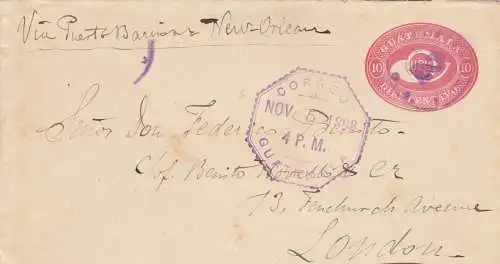 Via Puerto Barrios & New Orleans
GUATEMALA
10 10
DIEZ CENTAVOS
CORREO
NOV 5 1898
4 P. M.
GUATEMALA
Señor Don Federico Benito
c/of. Benito & Co
73, Fenchurch Avenue
London